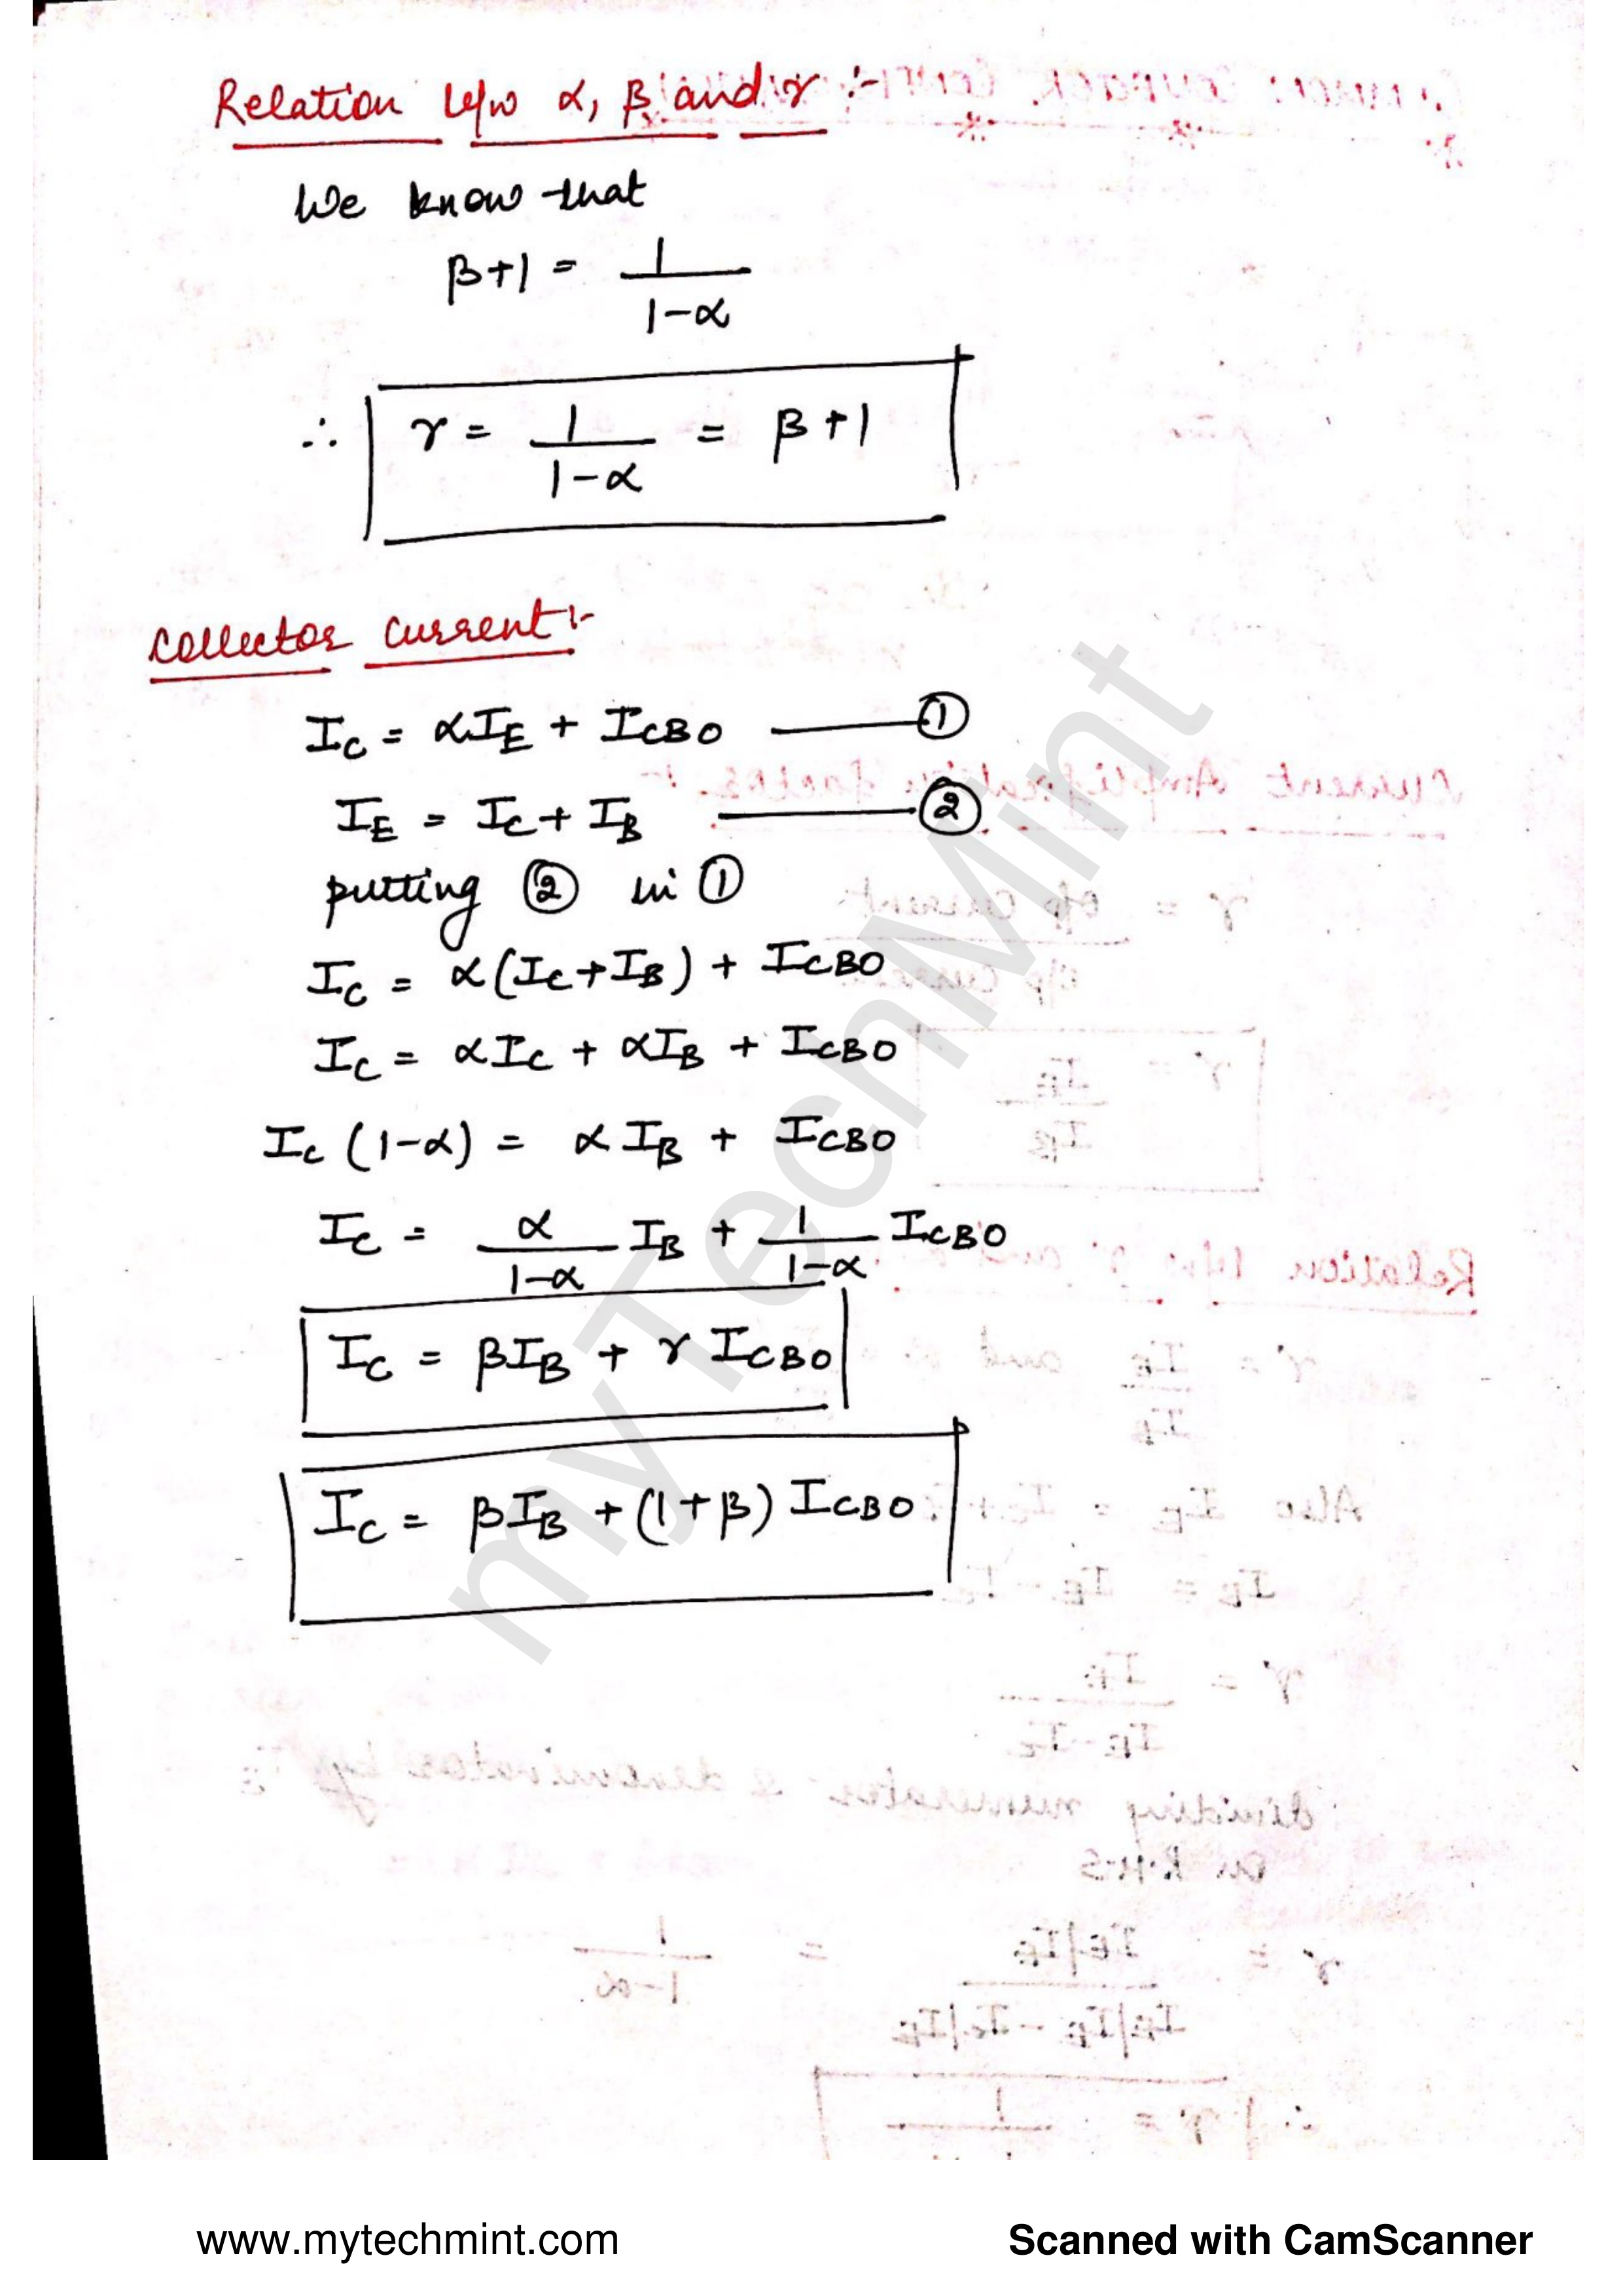 Relation b/w α, β and γ :-
We know that
β+1 = 1/(1-α)
∴ γ = 1/(1-α) = β+1
Collector Current :-
I_C = αI_E + I_CBO ——— ①
I_E = I_C + I_B ——— ②
putting ② in ①
I_C = α(I_C+I_B) + I_CBO
I_C = αI_C + αI_B + I_CBO
I_C (1-α) = αI_B + I_CBO
I_C = α/(1-α) I_B + 1/(1-α) I_CBO
I_C = βI_B + γ I_CBO
I_C = βI_B + (1+β) I_CBO
myTechMint
www.mytechmint.com
Scanned with CamScanner